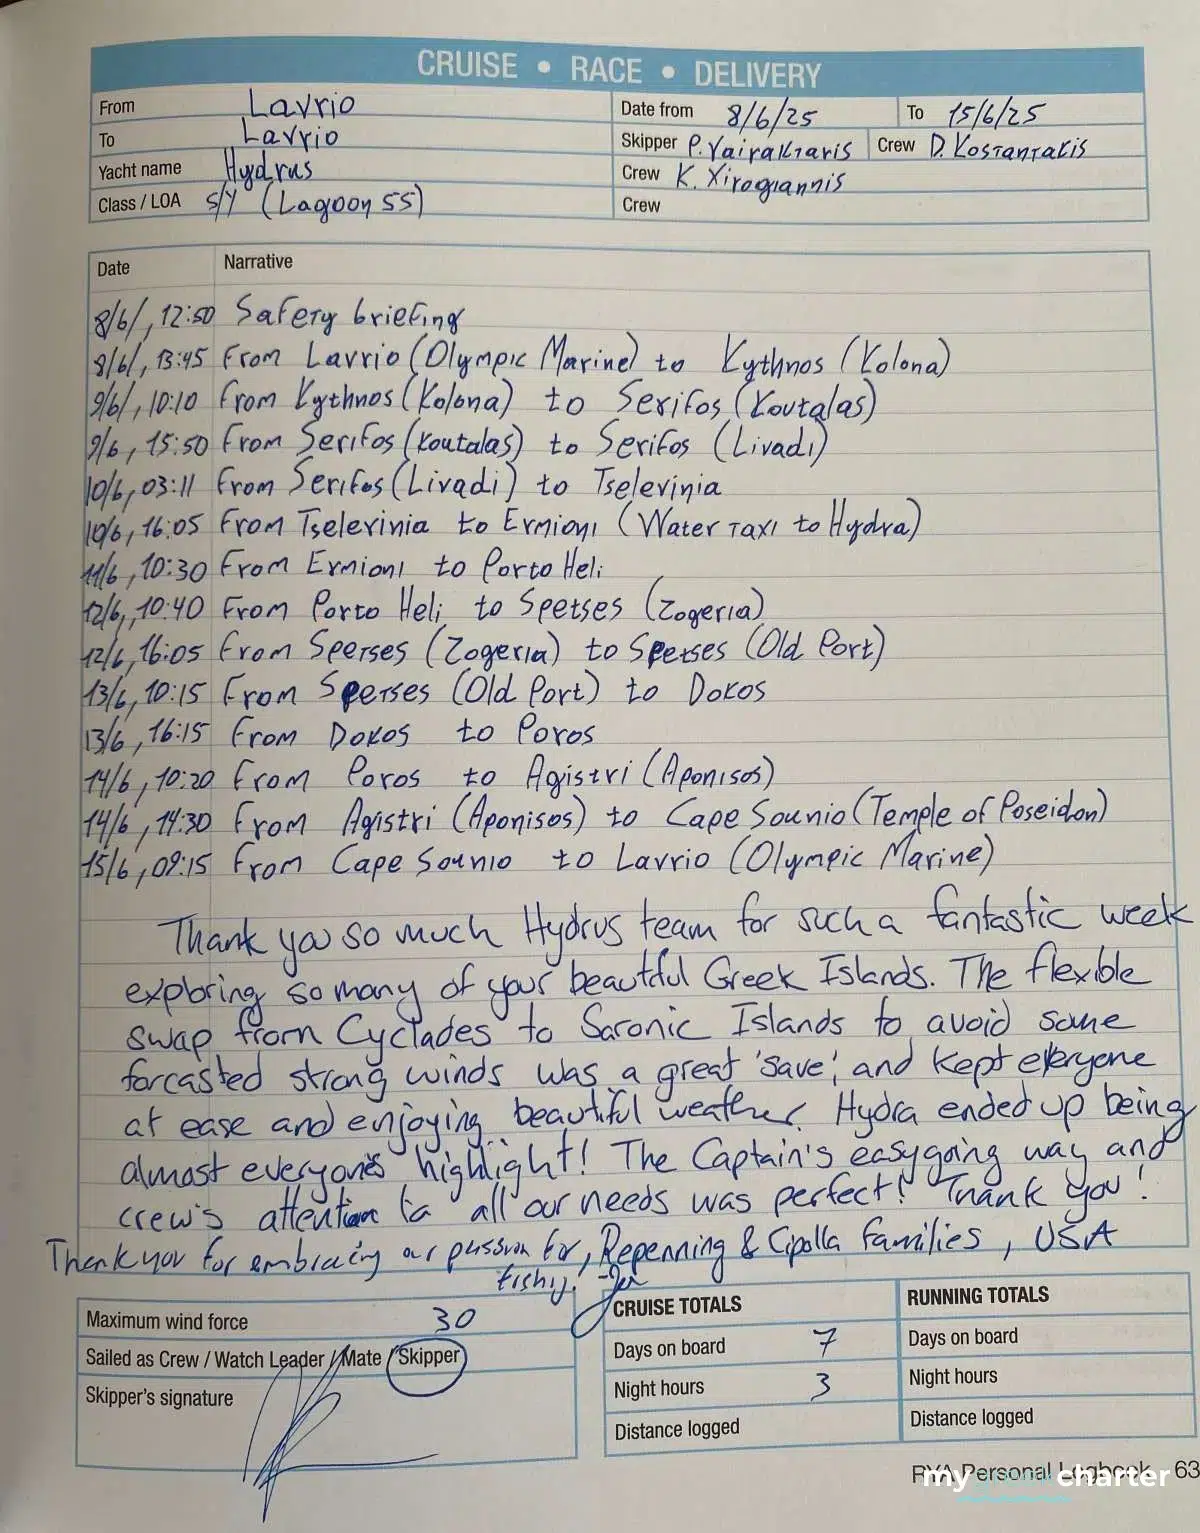 CRUISE • RACE • DELIVERY
From Lavrio Date from 8/6/25 To 15/6/25
To Lavrio Skipper P. Vairaktaris Crew D. Kostantakis
Yacht name Hydrus Crew K. Xirogiannis
Class / LOA S/Y (Lagoon 55) Crew
Date Narrative
8/6/, 12:50 Safety briefing
8/6/, 13:45 From Lavrio (Olympic Marine) to Kythnos (Kolona)
9/6/, 10:10 From Kythnos (Kolona) to Serifos (Koutalas)
9/6, 15:50 From Serifos (Koutalas) to Serifos (Livadi)
10/6, 03:11 From Serifos (Livadi) to Tselevinia
10/6, 16:05 From Tselevinia to Ermioni (Water taxi to Hydra)
11/6, 10:30 From Ermioni to Porto Heli
12/6, 10:40 From Porto Heli to Spetses (Zogeria)
12/6, 16:05 From Spetses (Zogeria) to Spetses (Old Port)
13/6, 10:15 From Spetses (Old Port) to Dokos
13/6, 16:15 From Dokos to Poros
14/6, 10:20 From Poros to Agistri (Aponisos)
14/6, 14:30 From Agistri (Aponisos) to Cape Sounio (Temple of Poseidon)
15/6, 09:15 From Cape Sounio to Lavrio (Olympic Marine)
Thank you so much Hydrus team for such a fantastic week
exploring so many of your beautiful Greek Islands. The flexible
swap from Cyclades to Saronic Islands to avoid some
forcasted strong winds was a great 'save', and kept everyone
at ease and enjoying beautiful weather. Hydra ended up being
almost everyone's highlight! The Captain's easygoing way and
crew's attention to all our needs was perfect! Thank you!
Thank you for embracing our passion for, Repenning & Cipolla families, USA
fishing!
Maximum wind force 30
Sailed as Crew / Watch Leader / Mate / Skipper
Skipper's signature
CRUISE TOTALS
Days on board 7
Night hours 3
Distance logged
RUNNING TOTALS
Days on board
Night hours
Distance logged
RYA Personal Logbook 63
my charter